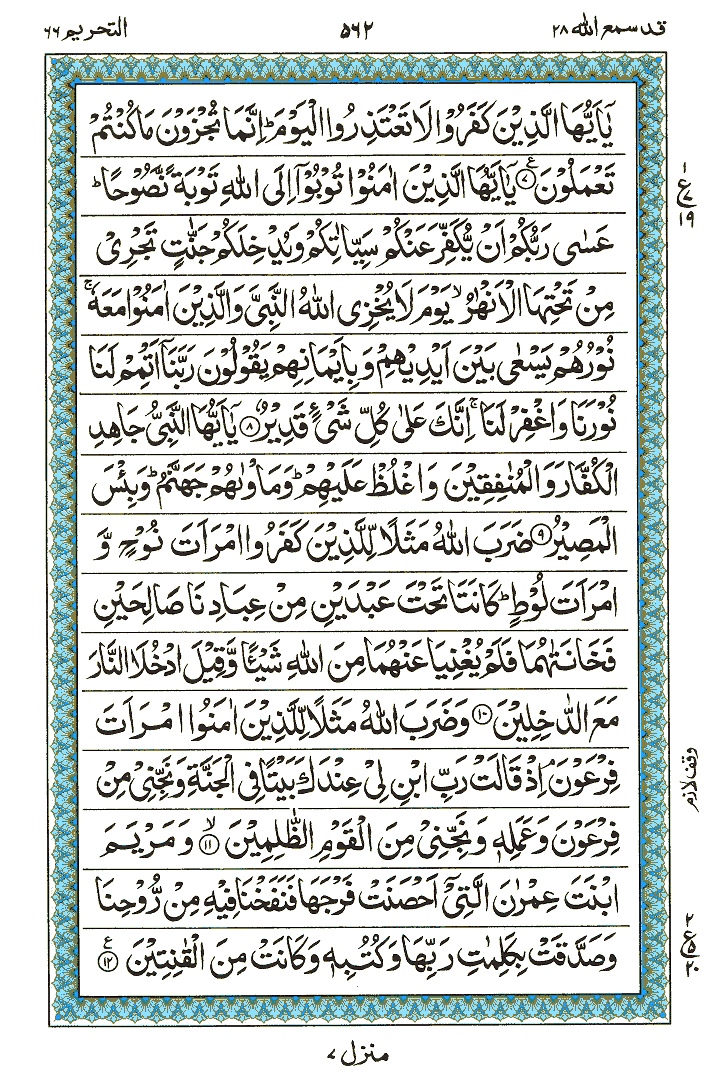 قد سمع الله ٢٨
٥٦٢
التحريم ٦٦
يٰۤاَيُّهَا الَّذِيْنَ كَفَرُوْا لَا تَعْتَذِرُوا الْيَوْمَ ؕ اِنَّمَا تُجْزَوْنَ مَا كُنْتُمْ
تَعْمَلُوْنَ ࣖ ﴿٧﴾ يٰۤاَيُّهَا الَّذِيْنَ اٰمَنُوْا تُوْبُوْۤا اِلَى اللّٰهِ تَوْبَةً نَّصُوْحًا ؕ
عَسٰى رَبُّكُمْ اَنْ يُّكَفِّرَ عَنْكُمْ سَيِّاٰتِكُمْ وَيُدْخِلَكُمْ جَنّٰتٍ تَجْرِىْ
مِنْ تَحْتِهَا الْاَنْهٰرُ ۙ يَوْمَ لَا يُخْزِى اللّٰهُ النَّبِىَّ وَالَّذِيْنَ اٰمَنُوْا مَعَهٗ ۚ
نُوْرُهُمْ يَسْعٰى بَيْنَ اَيْدِيْهِمْ وَبِاَيْمَانِهِمْ يَقُوْلُوْنَ رَبَّنَاۤ اَتْمِمْ لَنَا
نُوْرَنَا وَاغْفِرْ لَنَا ۚ اِنَّكَ عَلٰى كُلِّ شَىْءٍ قَدِيْرٌ ﴿٨﴾ يٰۤاَيُّهَا النَّبِىُّ جَاهِدِ
الْكُفَّارَ وَالْمُنٰفِقِيْنَ وَاغْلُظْ عَلَيْهِمْ ؕ وَمَاْوٰىهُمْ جَهَنَّمُ ؕ وَبِئْسَ
الْمَصِيْرُ ﴿٩﴾ ضَرَبَ اللّٰهُ مَثَلًا لِّلَّذِيْنَ كَفَرُوا امْرَاَتَ نُوْحٍ وَّ
امْرَاَتَ لُوْطٍ ؕ كَانَتَا تَحْتَ عَبْدَيْنِ مِنْ عِبَادِنَا صَالِحَيْنِ
فَخَانَتٰهُمَا فَلَمْ يُغْنِيَا عَنْهُمَا مِنَ اللّٰهِ شَيْـًٔا وَّقِيْلَ ادْخُلَا النَّارَ
مَعَ الدّٰخِلِيْنَ ﴿١٠﴾ وَضَرَبَ اللّٰهُ مَثَلًا لِّلَّذِيْنَ اٰمَنُوا امْرَاَتَ
فِرْعَوْنَ ۘ اِذْ قَالَتْ رَبِّ ابْنِ لِىْ عِنْدَكَ بَيْتًا فِى الْجَنَّةِ وَنَجِّنِىْ مِنْ
فِرْعَوْنَ وَعَمَلِهٖ وَنَجِّنِىْ مِنَ الْقَوْمِ الظّٰلِمِيْنَ ۙ ﴿١١﴾ وَمَرْيَمَ
ابْنَتَ عِمْرٰنَ الَّتِىْۤ اَحْصَنَتْ فَرْجَهَا فَنَفَخْنَا فِيْهِ مِنْ رُّوْحِنَا
وَصَدَّقَتْ بِكَلِمٰتِ رَبِّهَا وَكُتُبِهٖ وَكَانَتْ مِنَ الْقٰنِتِيْنَ ࣖ ﴿١٢﴾
١
ع ٧
١٩
وقف لازم
٢
ع ٥
٢٠
منزل ٧